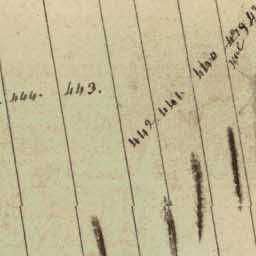 444. 443. 442 441. 440 439